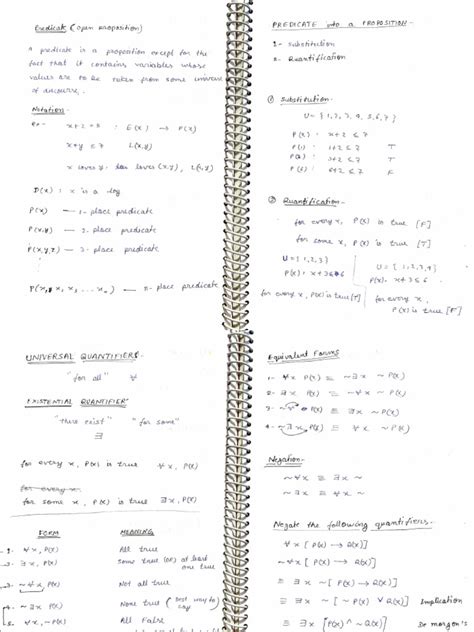 Predicate (open proposition)
A predicate is a proposition except for the
fact that it contains variables whose
values are to be taken from some universe
of discourse.
Notation -
x + 2 = 3 : E(x) → P(x)
x + y ≤ 7 L(x,y)
x loves y : L(x,y)
D(x) : x is a dog
P(x) — 1- place predicate
P(x,y) — 2- place predicate
P(x,y,z) — 3- place predicate
— n- place predicate
UNIVERSAL QUANTIFIERS -
"for all" ∀
EXISTENTIAL QUANTIFIER -
"there exist" "for some"
∃
for every x, P(x) is true ∀x, P(x)
for every x
for some x, P(x) is true ∃x, P(x)
FORM MEANING
1. ∀x, P(x) All true
2. ∃x, P(x) Some true (OR) at least
one true
3. ~∀x, P(x) Not all true
4. ~∃x, P(x) None true (best way to
say)
5. ∀x, P(x) All false
PREDICATE into a PROPOSITION -
1- Substitution
2- Quantification
① Substitution -
U = {1,2,3,4,5,6,7}
P(x) : x+2 ≤ 7
P(1) : 1+2 ≤ 7 T
T
F
② Quantification -
for every x, P(x) is true [F]
for some x, P(x) is true [T]
U = {1,2,3} U = {1,2,3,4}
P(x): x+3≤6 P(x): x+3≤6
for every x, P(x) is true [T] for every x,
P(x) is true [F]
Equivalent Forms
1- ∀x P(x) ≡ ~∃x ~P(x)
2- ∃x P(x) ≡ ~∀x ~P(x)
≡ ∃x ~P(x)
4- ~∃x P(x) ≡ ∀x ~P(x)
Negation -
~∀x ≡ ∃x ~
~∃x ≡ ∀x ~
Negate the following quantifiers -
∀x [P(x) → Q(x)]
≡ ∃x ~[P(x) → Q(x)]
≡ ∃x ~[~P(x) ∨ Q(x)] Implication
≡ ∃x [P(x) ^ ~Q(x)] De morgan's